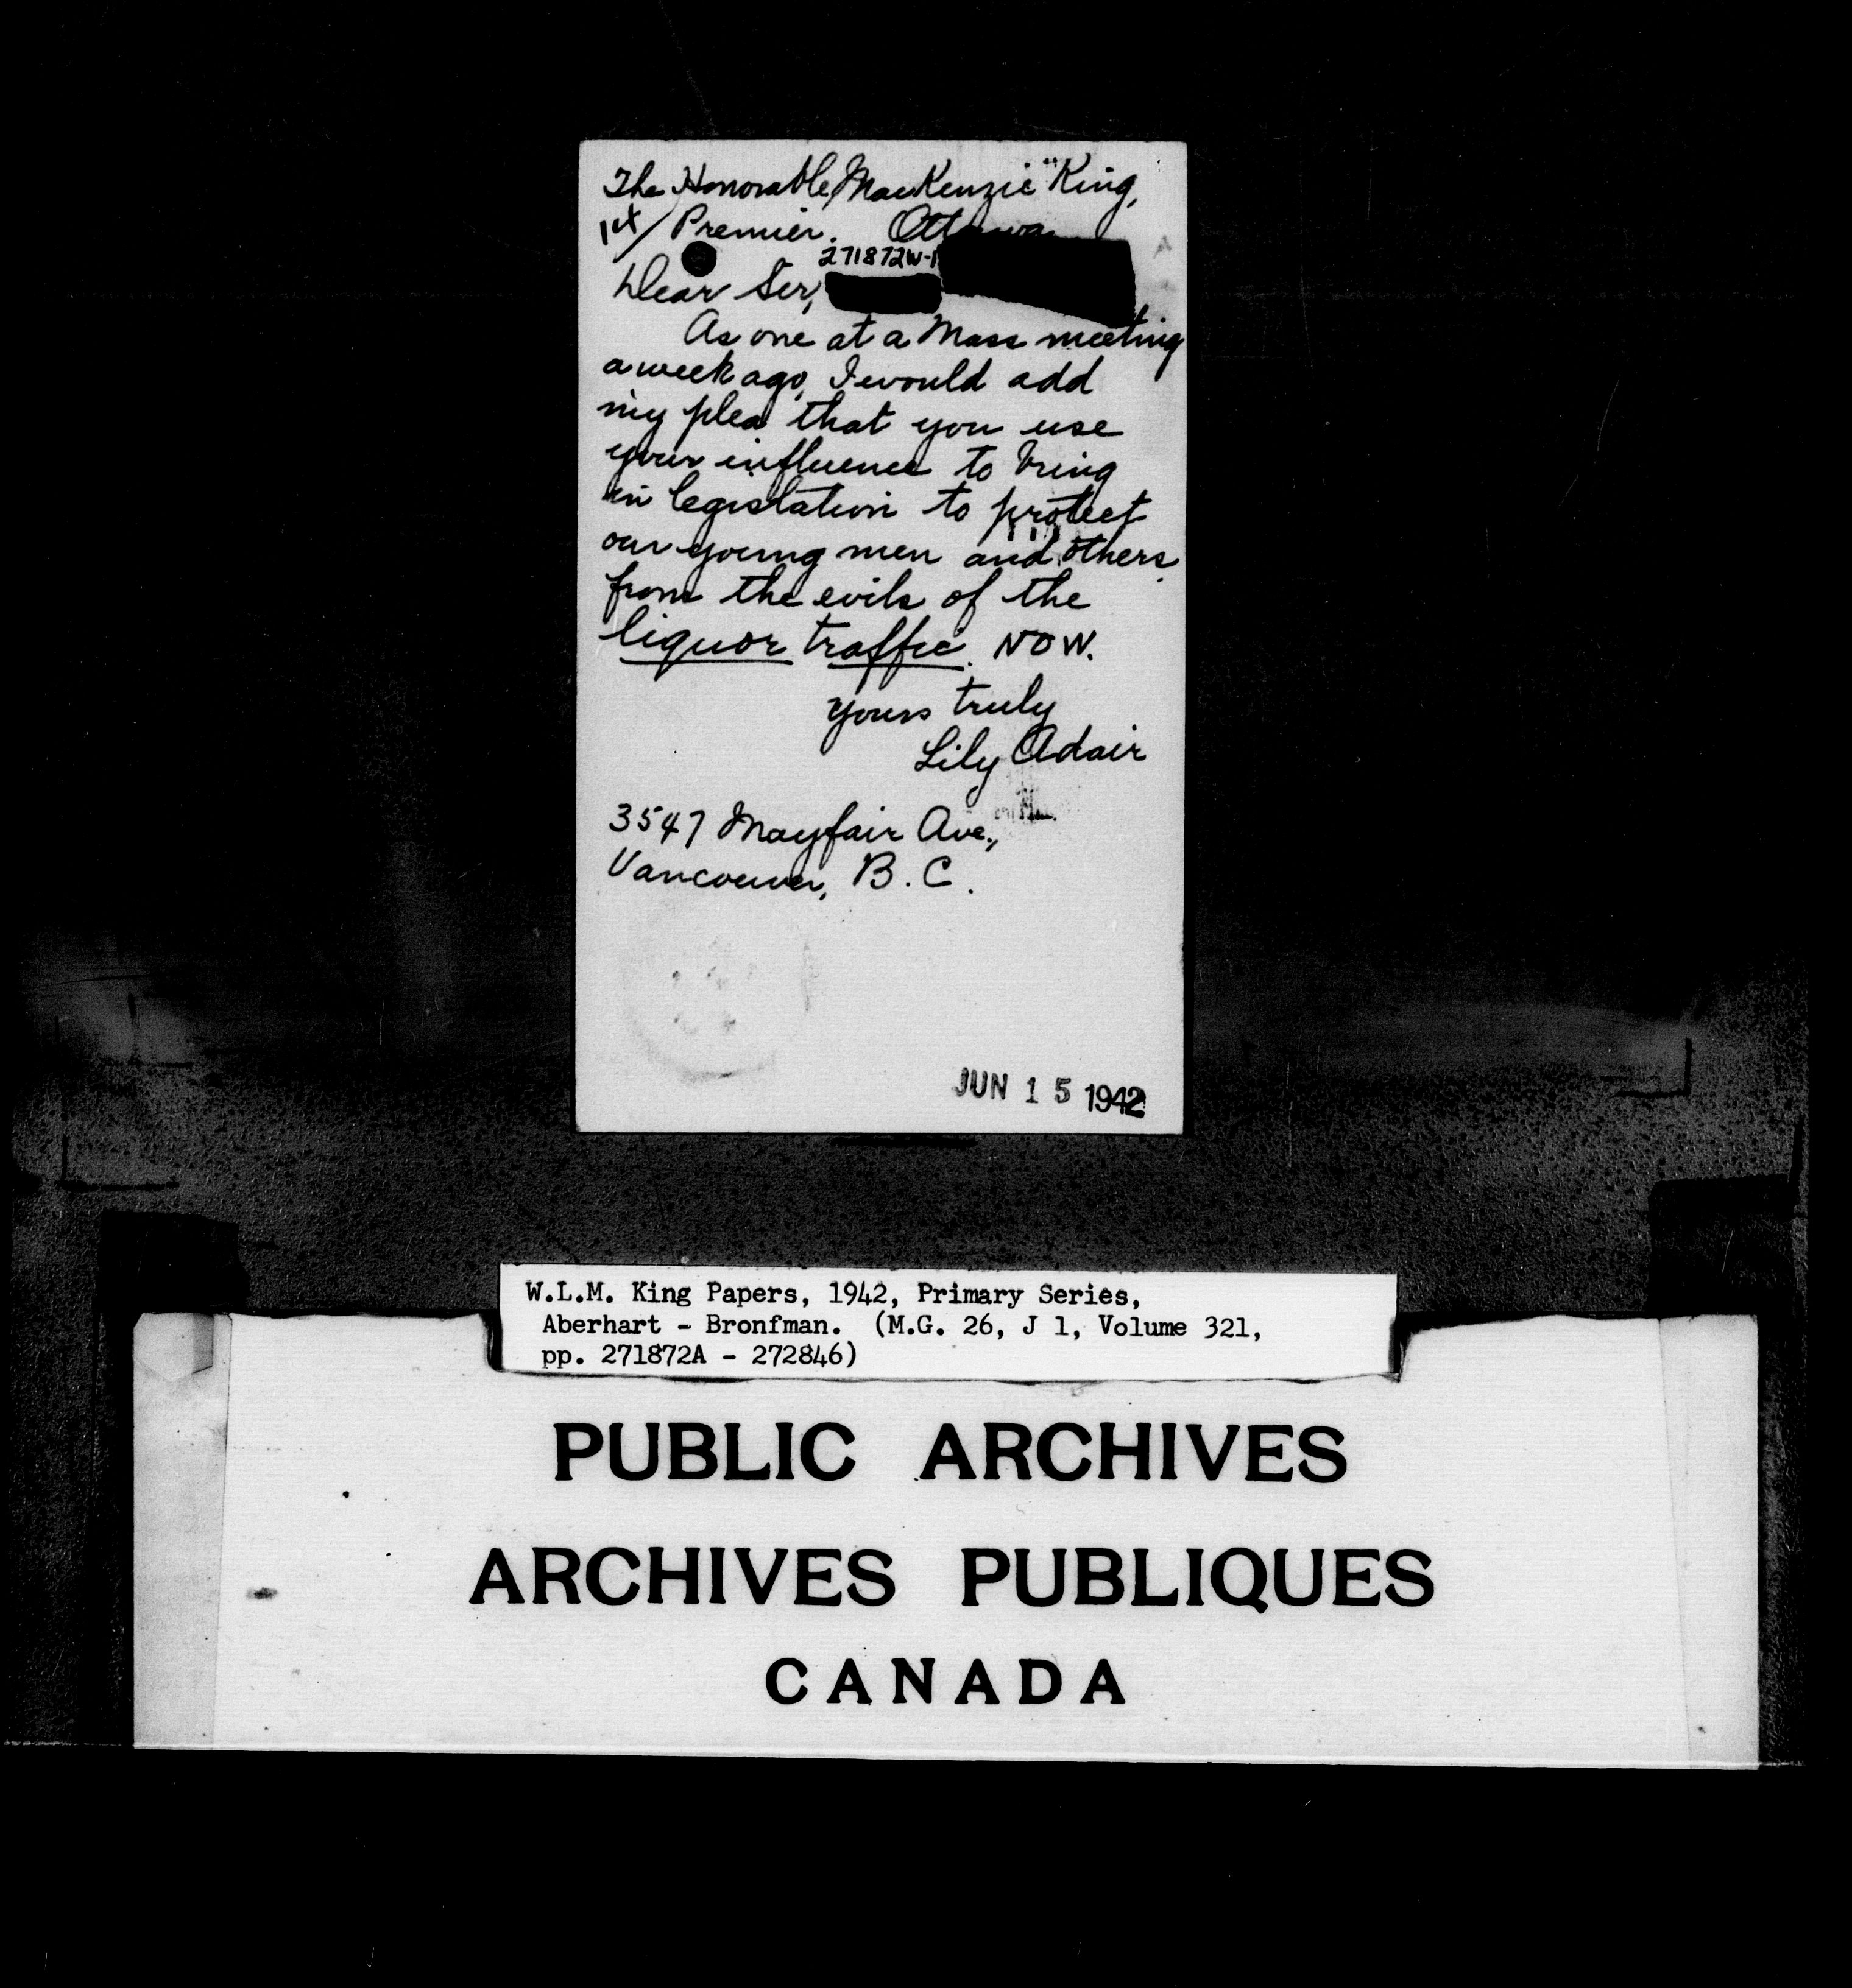 The Honorable MacKenzie King,
Premier. Ottawa
271872W-1
Dear Sir,
As one at a Mass meeting
a week ago, I would add
my plea that you use
your influence to bring
in legislation to protect
our young men and others
from the evils of the
liquor traffic. NOW.
Yours truly
Lily Adair
3547 Mayfair Ave.,
Vancouver, B.C.
JUN 15 1942
W.L.M. King Papers, 1942, Primary Series,
Aberhart - Bronfman. (M.G. 26, J 1, Volume 321,
pp. 271872A - 272846)
PUBLIC ARCHIVES
ARCHIVES PUBLIQUES
CANADA